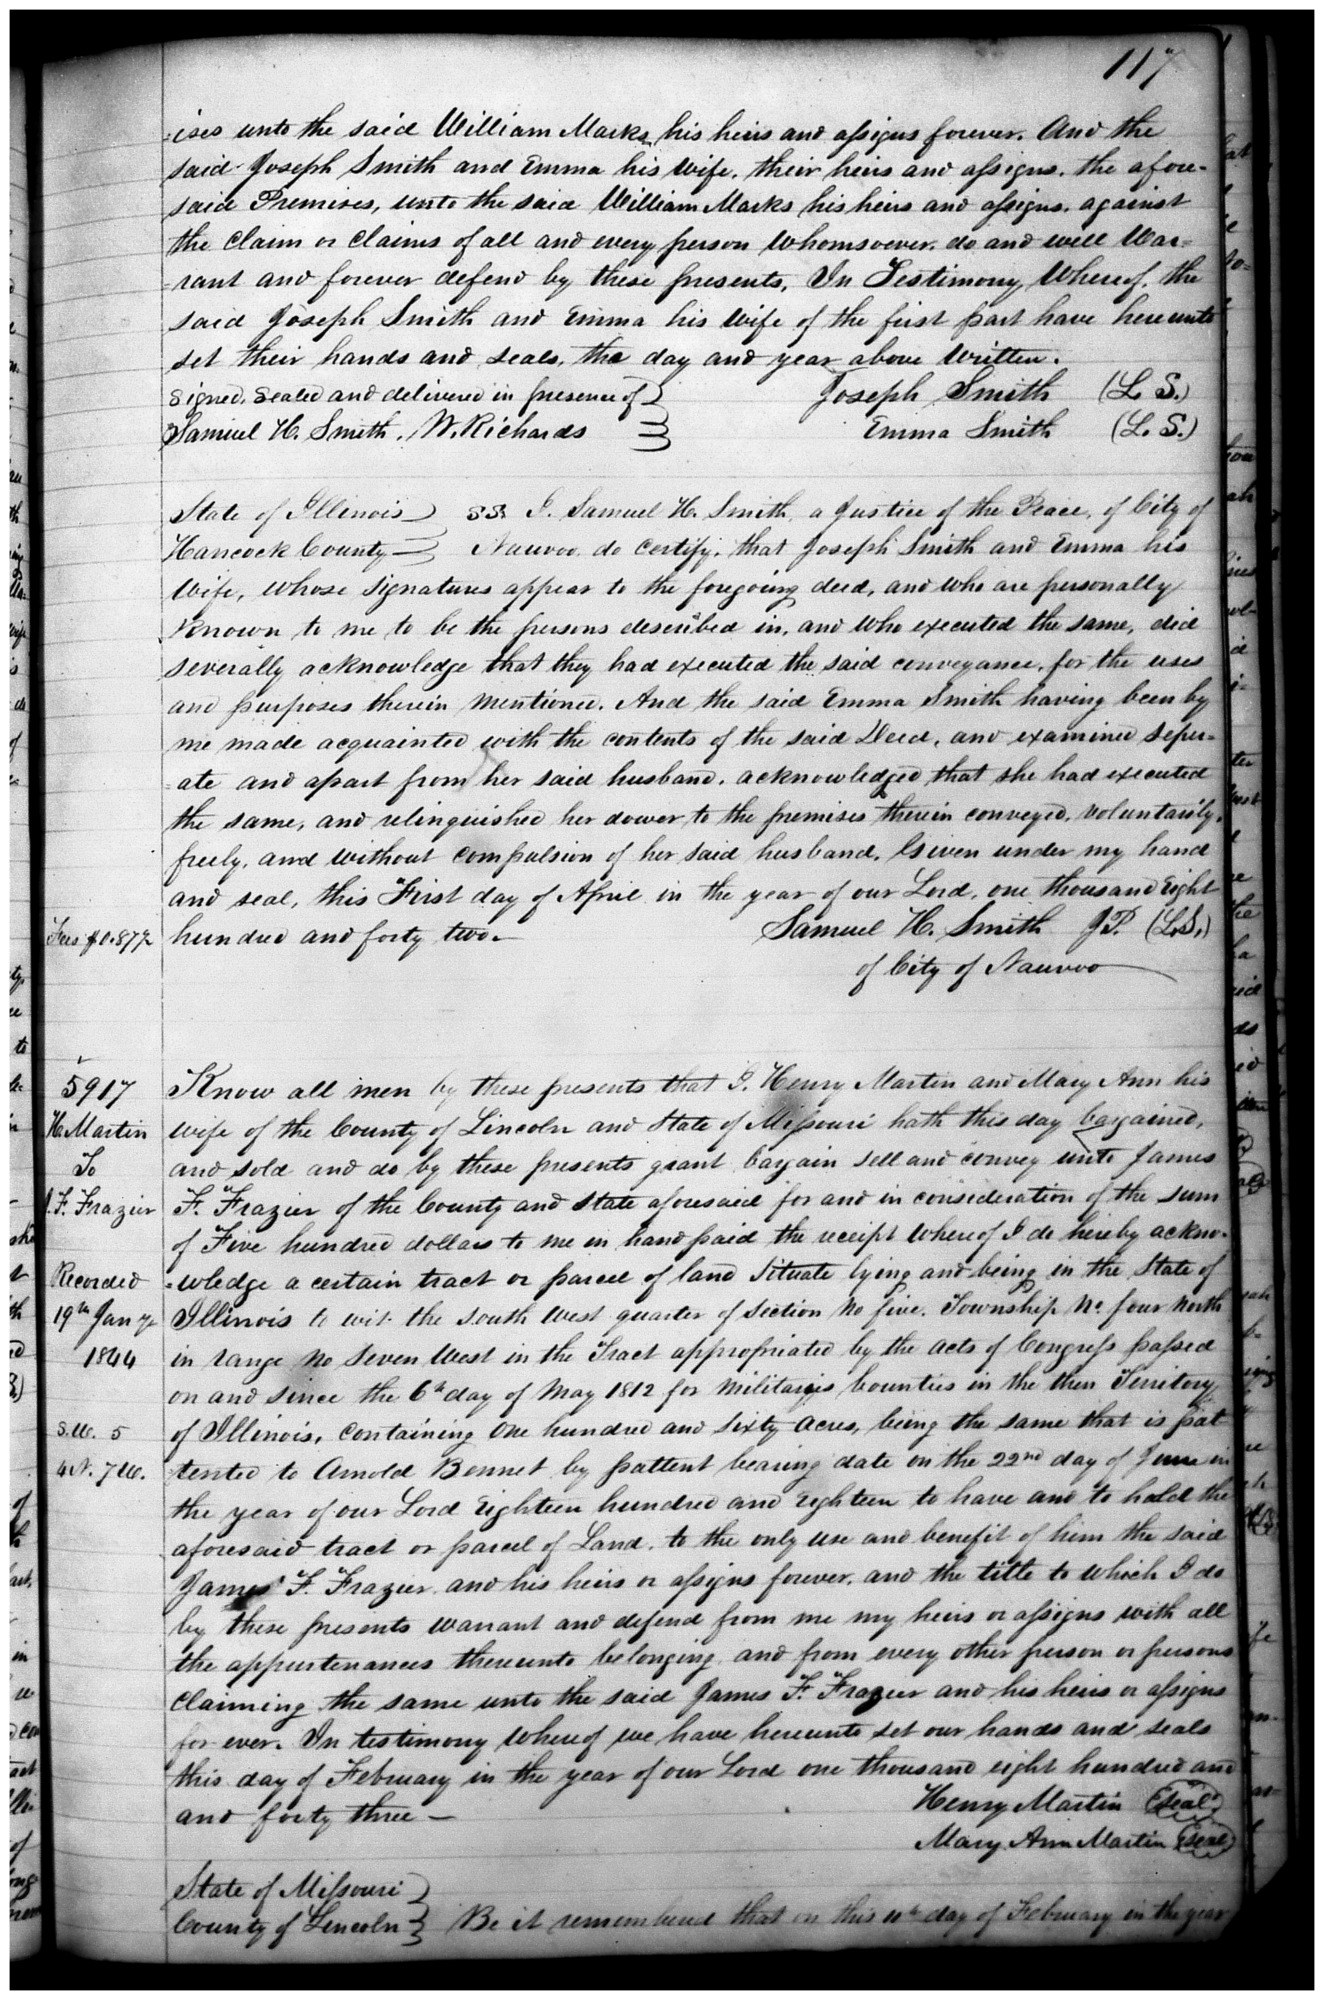 117
-ises unto the said William Marks, his heirs and assigns forever. And the
said Joseph Smith and Emma his wife, their heirs and assigns, the afore-
said Premises, unto the said William Marks his heirs and assigns, against
the Claim or Claims of all and every person whomsoever, do and will War-
-rant and forever defend by these presents, In Testimony Whereof, the
said Joseph Smith and Emma his wife of the first part have hereunto
set their hands and seals, the day and year above Written.
Signed, Sealed and delivered in presence of Joseph Smith (L. S.)
Samuel H. Smith, W. Richards Emma Smith (L. S.)
State of Illinois SS. I. Samuel H. Smith, a Justice of the Peace, of City of
Hancock County Nauvoo do Certify, that Joseph Smith and Emma his
Wife, whose signatures appear to the foregoing deed, and who are personally
Known to me to be the persons described in, and who executed the same, did
severally acknowledge that they had executed the said conveyance, for the uses
and purposes therein mentioned. And the said Emma Smith having been by
me made acquainted with the contents of the said Deed, and examined seper-
-ate and apart from her said husband, acknowledged that she had executed
the same, and relinquished her dower to the premises therein conveyed, voluntarily,
freely, and without compulsion of her said husband. Given under my hand
and seal, this First day of April in the year of our Lord, one thousand Eight
Fees $0.87½ hundred and forty two. Samuel H. Smith J.P. (L.S.)
of City of Nauvoo
5917 Know all men by these presents that I. Henry Martin and Mary Ann his
H. Martin wife of the County of Lincoln and State of Missouri hath this day bargained,
To and sold and do by these presents grant bargain sell and convey unto James
J. F. Frazier F. Frazier of the County and State aforesaid for and in consideration of the sum
of Five hundred dollars to me in hand paid the receipt whereof I do hereby ackno-
Recorded -wledge a certain tract or parcel of land Situate lying and being in the State of
19th Jany Illinois to wit. the South West quarter of Section No five. Township No. four North
1844 in range No Seven West in the Tract appropriated by the acts of Congress passed
on and since the 6th day of May 1812 for Militarys bounties in the then Territory
S.W. 5 of Illinois, Containing One hundred and Sixty acres, being the same that is pat
4 N. 7 W. tented to Arnold Bennet by pattent bearing date on the 22nd day of June in
the year of our Lord Eighteen hundred and Eighteen to have and to hold the
aforesaid tract or parcel of Land. to the only use and benefit of him the said
James F. Frazier and his heirs or assigns forever. and the title to which I do
by these presents warrant and defend from me my heirs or assigns with all
the appurtenances thereunto belonging and from every other person or persons
Claiming the same unto the said James F. Frazier and his heirs or assigns
for ever. In testimony whereof we have hereunto set our hands and seals
this day of February in the year of our Lord one thousand eight hundred and
and forty three Henry Martin (Seal)
Mary Ann Martin (Seal)
State of Missouri
County of Lincoln Be it remembered that on this 11th day of February in the year